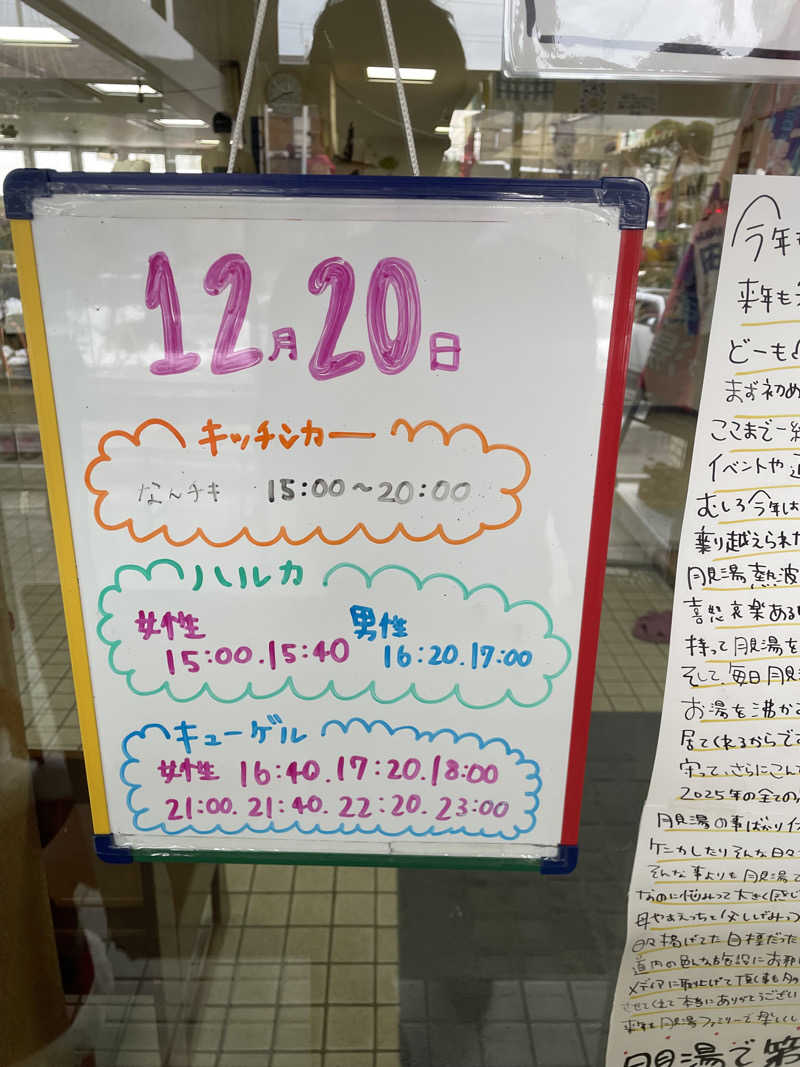 12月20日
キッチンカー
なんチキ 15:00~20:00
ハルカ
女性 男性
15:00.15:40 16:20.17:00
キューゲル
女性 16:40.17:20.18:00
21:00.21:40.22:20.23:00
今年
来年も
どーも
まず初め
ここまで一緒
イベントや
むしろ今年は
乗り越えられた
月見湯熱波
喜怒哀楽ある
持って月見湯を
そして、毎日月見
お湯を沸かす
居てくれるからです
守って、さらにこん
2025年の全ての
月見湯の事ばかり
ケンカしたりそんな日々
そんな事よりも月見湯で
なのに悩みって大きく感じ
日々掲げてた目標だった
メディアに取上げて頂く事も
させてくれて本当にありがとうござい
来年も月見湯ファミリーで楽しくし
月見湯で